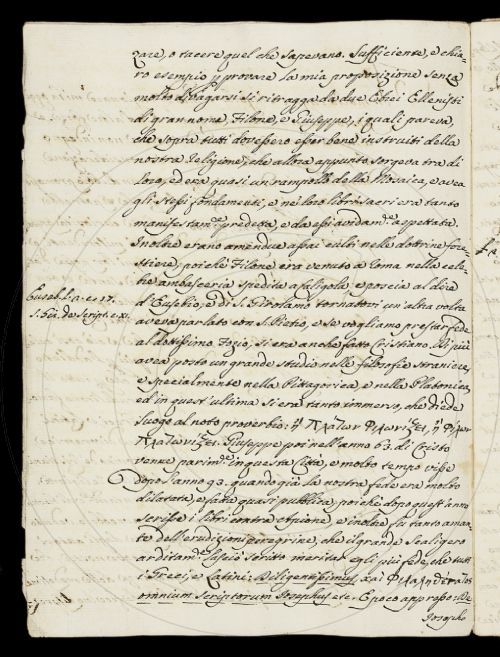 zare, o tacere quel che sapevano. Sufficiente, e chia-
ro esempio p provare la mia proposizione senza
molto divagarsi si ritragga da due Ebrei Ellenisti
di gran nome Filone, e Giuseppe, i quali pareva,
che sopra tutti dovessero esser bene instruiti della
nostra Religione, che allora appunto sorgeva tra di
loro, ed era quasi un rampollo della Mosaica, e avea
gli stessi fondamenti, e nei loro libri sacri era tanto
manifestam.e predetta, e da essi avidam.e aspettata.
Inoltre erano amendue assai culti nelle dottrine fore-
stiere, poichè Filone era venuto a Roma nella cele-
bre ambasceria spedita a Caligola, e poscia al dire
Euseb. l. 2. c. 17.
d'Eusebio, e di S. Girolamo tornatovi un'altra volta
S. Gir. de Script. c. XI.
aveva parlato con S. Pietro, e se vogliamo prestar fede
al dottissimo Fozio, si era anche fatto Cristiano. Di più
avea posto un grande studio nelle filosofie straniere,
e specialmente nella Pittagorica, e nella Platonica,
ed in quest'ultima si era tanto immerso, che diede
luogo al noto proverbio: ἢ Πλάτων Φιλωνίζει, ἢ Φίλων
Πλατωνίζει. Giuseppe poi nell'anno 63. di Cristo
venne parim.e in questa Città, e molto tempo visse
dopo l'anno 93. quando già la nostra fede era molto
dilatata, e fatta quasi pubblica, poichè dopo quest'anno
scrisse i libri contra Appione, e inoltre fu tanto aman-
te dell'erudizioni peregrine, che il grande Scaligero
arditam.e lasciò scritto meritar egli più fede, che tutti
i Greci, e Latini: Diligentissimus, καὶ Φιλαληθέστατος
omnium Scriptorum Josephus etc. E poco appresso: De
Josepho